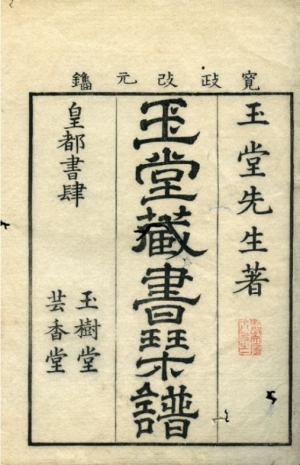 寬政改元鐫
玉堂先生著
玉堂藏書琹譜
皇都書肆
玉樹堂
芸香堂